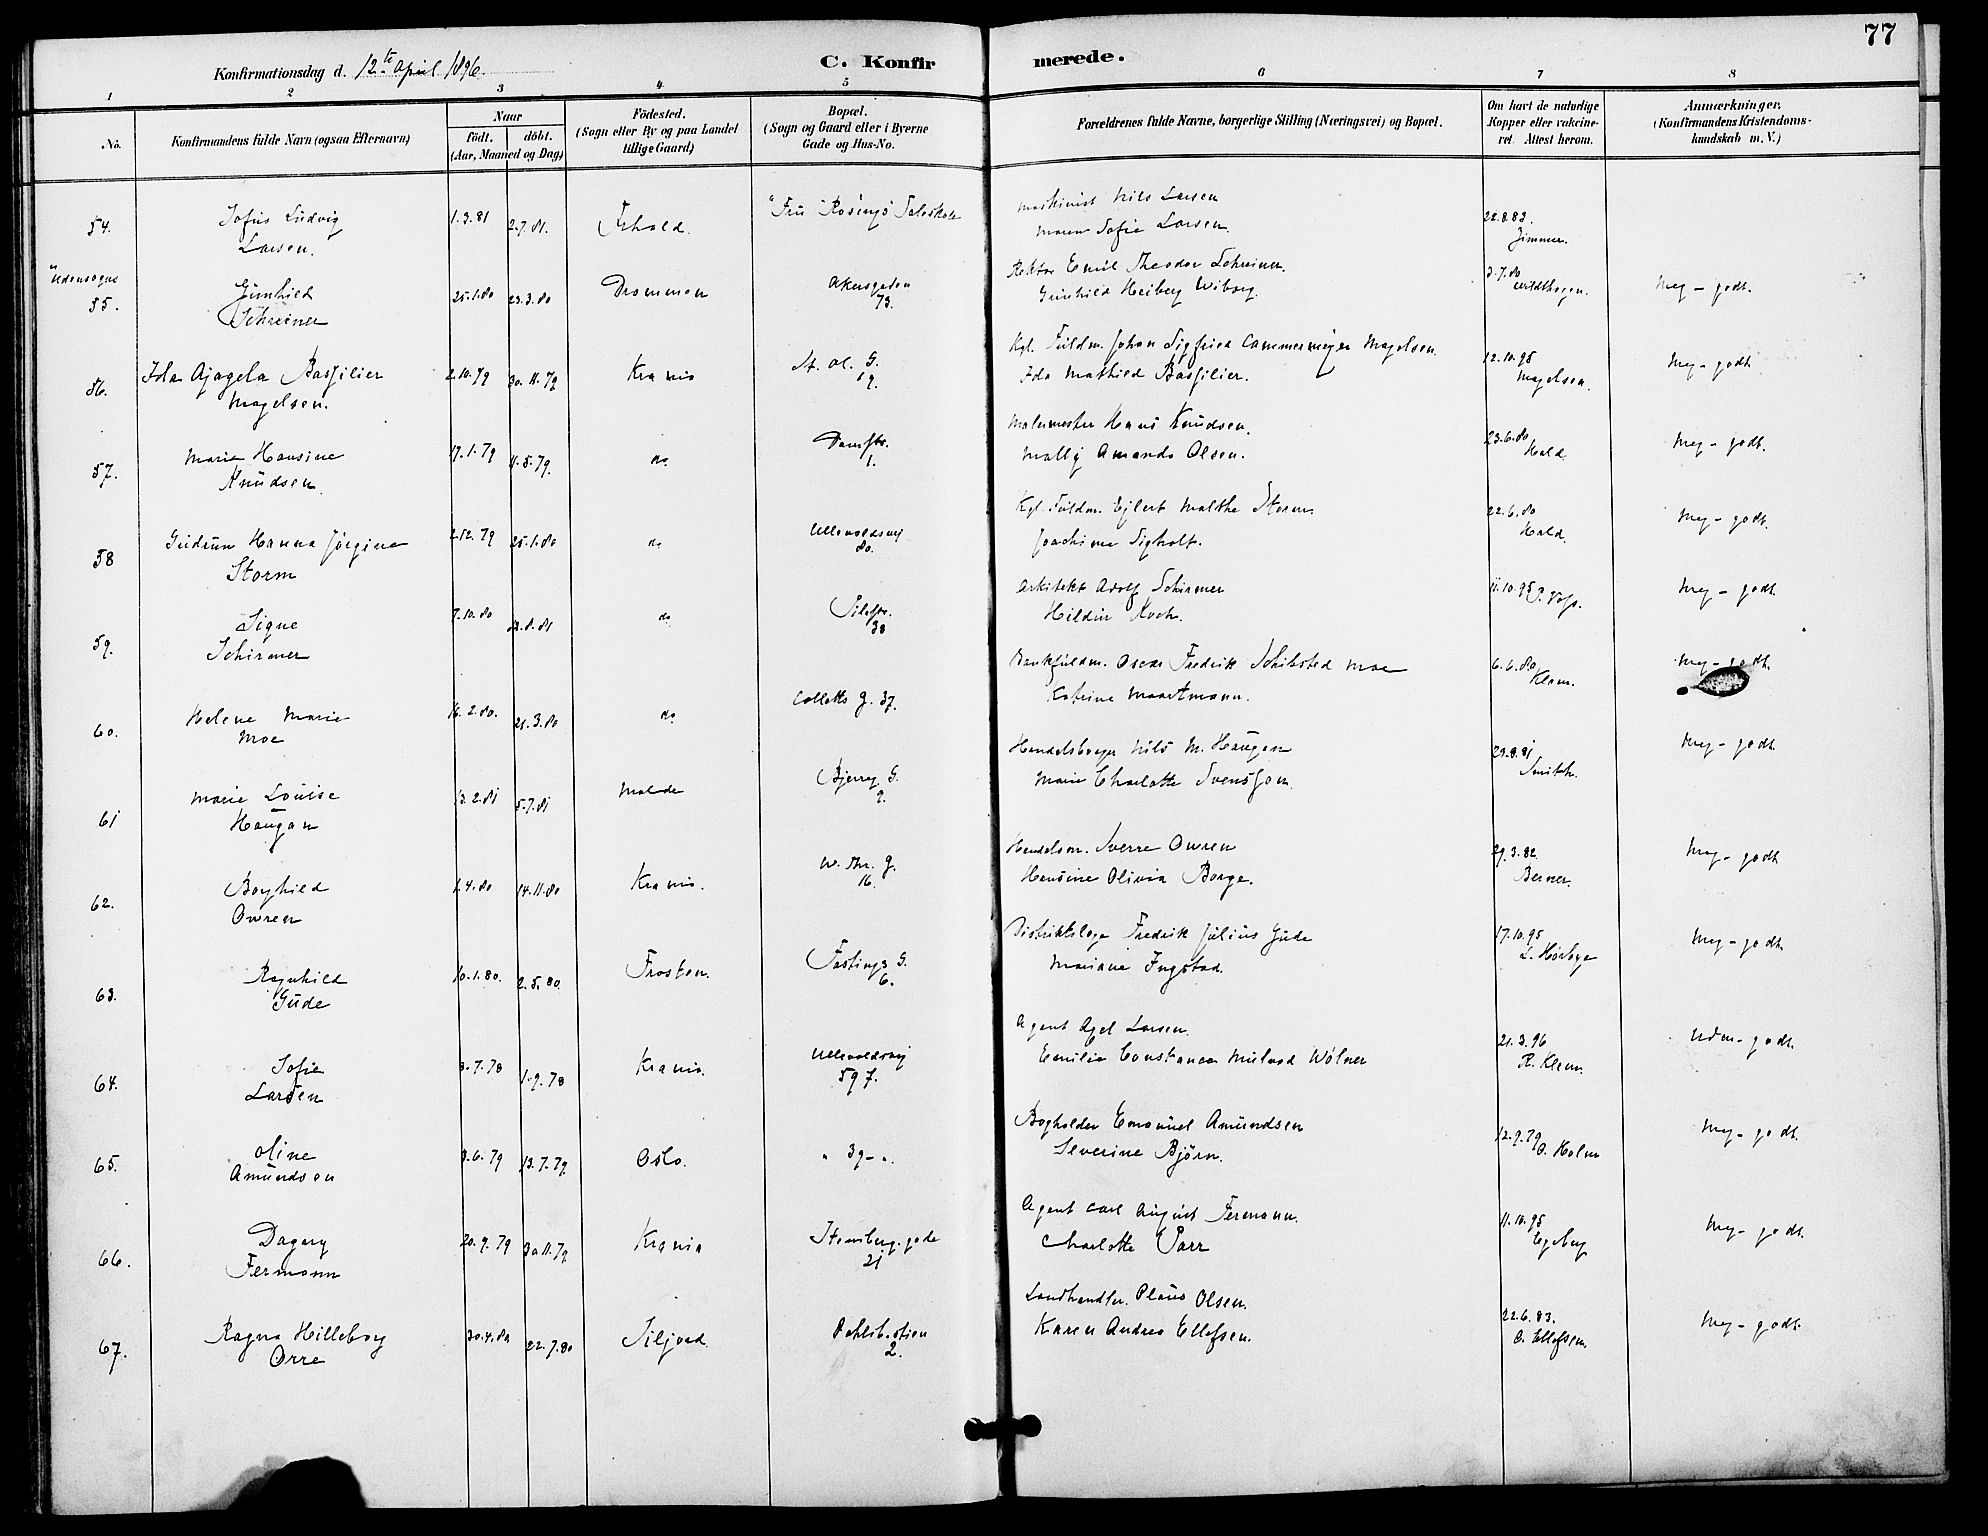 77
Konfirmationsdag d. 12te April 1896.
C. Konfirmerede.
1 2 3 4 5 6 7 8
No.
Konfirmandens fulde Navn (ogsaa Efternavn)
Naar
födt. döbt.
(Aar, Maaned og Dag)
Födested.
(Sogn eller By og paa Landet
tillige Gaard)
Bopæl.
(Sogn og Gaard eller i Byerne
Gade og Hus-No.
Forældrenes fulde Navne, borgerlige Stilling (Næringsvei) og Bopæl.
Om havt de naturlige
Kopper eller vakcine-
ret. Attest herom.
Anmærkninger.
(Konfirmandens Kristendoms-
kundskab m. V.)
54. Sofus Ludvig 1.3.81 2.7.81. Frhald. "Fru Rosings" Taleskole Maskinist Nils Larsen 22.8.83.
Larsen. Maren Sofie Larsen. Zimmer.
Udensogns
55. Gunhild 25.1.80 23.3.80 Drammen Akersgaden Rektor Emil Theodor Schreiner. 3.7.80 Meg - godt.
Schreiner 73. Gunhild Heiberg Wiborg.
56. Ida Ajagela Bassilier 2.10.79 30.11.79 Krania St. Ol. G. Kgl. Fuldm. Johan Sigfried Cammermeyer Magelsen. 12.10.95 Meg - godt
Magelsen. 19. Ida Mathild Bassilier. Magelsen.
57. Marie Hansine 17.1.79 11.5.79. do. 1. Malermester Hans Knudsen. 23.6.80 Meg - godt.
Knudsen. Mally Amanda Olsen. Hald.
58 Gudrun Hanna Jörgine 2.12.79 25.1.80 do Ullevoldsvej Kgl. Fuldm. Ejlert Malthe Storm. 22.6.80 Meg - godt.
Storm 80. Joachime Sigholt. Hald.
59. Signe 7.10.80 do Pilestr. Arkitekt Adolf Schirmer 11.10.95 Meg - godt.
Schirmer 38 Hildur Koch.
60. Helene Marie 16.2.80. 21.3.80 do Colletts g. 37. Bankfuldm. Oscar Fredrik Schibsted Moe 6.6.80 Meg - godt.
Moe Katrine Maartmann. Klem.
61 Marie Louise 13.2.81 5.7.81 Molde Bjerreg G. Handelsborger Nils M. Haugan 29.8.81 Meg - godt.
Haugan 9. Marie Charlotte Svensson. Smith.
62. Borghild 1.4.80 14.11.80 Krania. W. Thr. g. Handelsm. Sverre Owren 29.3.82 Meg - godt
Owren 16. Hansine Olivia Borge. Berner.
63. Ragnhild 10.1.80. 2.5.80 Frosten. Fastings G. Distriktslæge Fredrik Julius Gude 17.10.95 Meg - godt.
Gude 6. Mariane Ingstad. L. Hörbye
64. Sofie 8.7.78 1.9.78 Krania. Ullevoldsvej Agent Axel Larsen. 21.3.96 Udm - godt.
Larsen 59 f. Emilie Constance Milved Wölner R. Klem.
65. Oline 8.6.79 13.7.79. Oslo. " 39 - ". Bogholder Emanuel Amundsen 12.9.79 Meg - godt.
Amundsen Severine Björn. O. Holm
66. Dagny 20.9.79 30.11.79. Krania Stensberg gade Agent Carl August Fermann. 11.10.95 Meg - godt.
Fermann 21 Charlotte Parr Egeberg
67. Ragna Hilleborg 30.4.80 22.7.80 Siljord Dahlsb. stien Landhandler. Olaus Olsen. 22.6.83. Meg - godt.
Orre 2. Karen Andrea Ellefsen. O. Ellefsen.